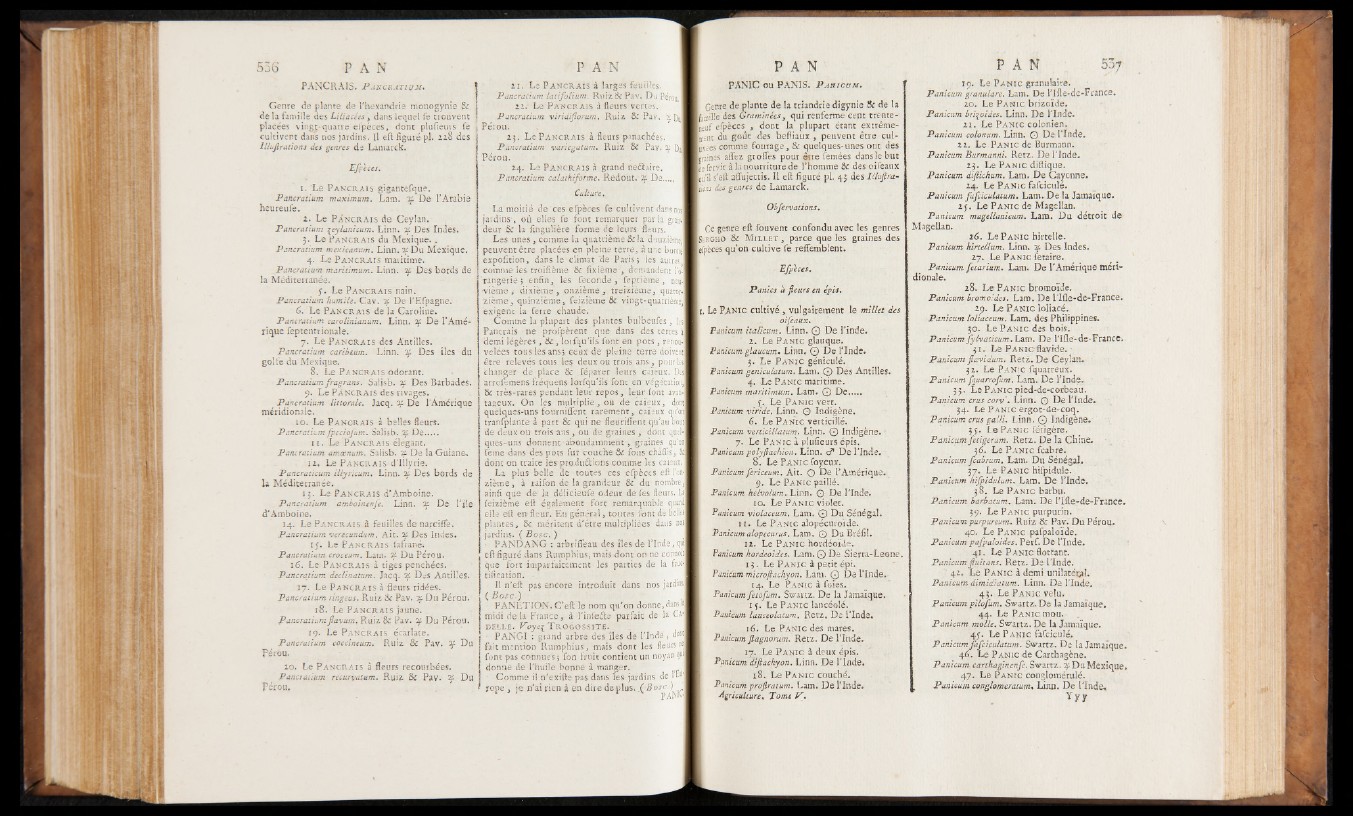 536 PAN
PANCRAIS. PANCRATIUM.
Genre de plante de l'hexandrie monogynie &
de la famille des Liliacées, dans lequel se trouvent
placées vingt-quatre espèces, dont plusieurs se
cultivent dans nos jardins. Il est figuré pl. 228 des
Illustrations des genres de Lamarck.
Espèces.
1. Le PANCRAIS gigantesque.
Pancratium maximum. Lam. ♃ De l'Arabie
heureuse.
2. Le PANCRAIS de Ceylan.
Pancratium zeylanicum. Linn. ♃ Des Indes.
3. Le PANCRAIS du Mexique.
Pancratium mexicanum. Linn. ♃ Du Mexique.
4. Le PANCRAIS maritime.
Pancratium maritimum. Linn. ♃ Des bords de
la Méditerranée.
5. Le PANCRAIS nain.
Pancratium humile. Cav. ♃ De l'Espagne.
6. Le PANCRAIS de la Caroline.
Pancratium carolinianum. Linn. ♃ De l'Amé-
rique septentrionale.
7. Le PANCRAIS des Antilles.
Pancratium caribeum. Linn. ♃ Des îles du
golfe du Mexique.
8. Le PANCRAIS odorant.
Pancratium fragrans. Salisb. ♃ Des Barbades.
9. Le PANCRAIS des rivages.
Pancratium littorale. Jacq. ♃ De l'Amérique
méridionale.
10. Le PANCRAIS à belles fleurs.
Pancratium speciosum. Salisb. ♃ De.....
11. Le PANCRAIS élégant.
Pancratium amœnum. Salisb. ♃ De la Guiane.
12. Le PANCRAIS d'Illyrie.
Pancraticum illyricum. Linn. ♃ Des bords de
la Méditerranée.
13. Le PANCRAIS d'Amboine.
Pancratium amboinense. Linn. ♃ De l'île
d'Amboine.
14. Le PANCRAIS à feuilles de narcisse.
Pancratium verecundum. Ait. ♃ Des Indes.
15. Le PANCRAIS safrané.
Pancratium croceum. Lam. ♃ Du Pérou.
16. Le PANCRAIS à tiges penchées.
Pancratium declinatum. Jacq. ♃ Des Antilles.
17. Le PANCRAIS à fleurs ridées.
Pancratium ringens. Ruiz & Pav. ♃ Du Pérou.
18. Le PANCRAIS jaune.
Pancratium flavum. Ruiz & Pav. ♃ Du Pérou.
19. Le PANCRAIS écarlate.
Pancratium coccineum. Ruiz & Pav. ♃ Du
Pérou.
20. Le PANCRAIS à fleurs recourbées.
Pancratium recurvatum. Ruiz & Pav. ♃ Du
Pérou.
PAN
21. Le PANCRAIS à larges feuilles.
Pancratium latifolium. Ruiz & Pav. Du Pérou.
22. Le PANCRAIS à fleurs vertes.
Pancratium viridiflorum. Ruiz & Pav. ♃ Du
Pérou.
23. Le PANCRAIS à fleurs panachées.
Pancratium variegatum. Ruiz & Pav. ♃ Du
Pérou.
24. Le PANCRAIS à grand nectaire.
Pancratium calathiforme. Redout. ♃ De.....
Culture.
La moitié de ces espèces se cultivent dans nos
jardins, où elles se font remarquer par la gran-
deur & la singulière forme de leurs fleurs.
Les unes, comme la quatrième & la douzième,
peuvent être placées en pleine terre, à une bonne
exposition, dans le climat de Paris; les autres,
comme les troisième & sixième, demandent l'o-
rangerie; enfin, les seconde, septième, neu-
vième, dixième, onzième, treizième, quator-
zième, quinzième, seizième & vingt-quatrième,
exigent la serre chaude.
Comme la plupart des plantes bulbeuses, les
Pancrais ne prospèrent que dans des terres à
demi légères, &, lorsqu'ils sont en pots, renou-
velées tous les ans; ceux de pleine terre doivent
être relevés tous les deux ou trois ans, pour les
changer de place & séparer leurs caïeux. Des
arrosemens fréquens lorsqu'ils sont en végétation,
& très-rares pendant leur repos, leur sont avan-
tageux. On les multiplie, ou de caïeux, dont
quelques-uns fournissent rarement, caïeux qu'on
transplante à part & qui ne fleurissent qu'au bout
de deux ou trois ans, ou de graines, dont quel-
ques-uns donnent abondamment, graines qu'on
sème dans des pots sur couche & sous châssis, &
dont on traite les productions comme les caïeux.
La plus belle de toutes ces espèces est la
zième, à raison de la grandeur & du nombre,
ainsi que de la délicieuse odeur de ses fleurs. La
seizième est également fort remarquable quand
elle est en fleur. En général, toutes sont de belles
plantes, & méritent d'être multipliées dans nos
jardins. (Bosc.)
PANDANG : arbrisseau des îles de l'Inde, qui
est figuré dans Rumphius, mais dont on ne connoît
que fort imparfaitement les parties de la fruc-
tification.
Il n'est pas encore introduit dans nos jardins.
(Bosc.)
PANETION. C'est le nom qu'on donne, dans le
midi de la France, à l'insecte parfait de la CA-
DELLE. Voyez TROGOSSITE.
PANGI : grand arbre des îles de l'Inde, dont
fait mention Rumphius, mais dont les fleurs ne
sont pas connues; son fruit contient un noyau qui
donne de l'huile bonne à manger.
Comme il n'existe pas dans les jardins de l'Eu-
rope, je n'ai rien à en dire de plus. (Bosc.)
PANIC
PAN
PANIC ou PANIS. PANICUM.
Genre de plante de la triandrie digynie & de la
famille des Graminées, qui renferme cent trente-
neuf espèces, dont la plupart étant extrême-
ment du goût des bestiaux, peuvent être cul-
tivées comme fourage, & quelques-unes ont des
graines assez grosses pour être semées dans le but
de servir à la nourriture de l'homme & des oiseaux
qu'il s'est assujettis. Il est figuré pl. 43 des Illustra-
tions des genres de Lamarck.
Observations.
Ce genre est souvent confondu avec les genres
SORGHO & MILLET, parce que les graines des
espèces qu'on cultive se ressemblent.
Espèces.
Panics à fleurs en épis.
1. Le PANIC cultivé, vulgairement le millet des
oiseaux.
Panicum italicum. Linn. ☉ De l'Inde.
2. Le PANIC glauque.
Panicum glaucum. Linn. ☉ De l'Inde.
3. Le PANIC géniculé.
Panicum geniculatum. Lam. ☉ Des Antilles.
4. Le PANIC maritime.
Panicum maritimum. Lam. ☉ De.....
5. Le PANIC vert.
Panicum viride. Linn. ☉ Indigène.
6. Le PANIC verticillé.
Panicum verticillatum. Linn. ☉ Indigène.
7. Le PANIC à plusieurs épis.
Panicum polystachion. Linn. ♂ De l'Inde.
8. Le PANIC soyeux.
Panicum sericeum. Ait. ☉ De l'Amérique.
9. Le PANIC paillé.
Panicum helvolum. Linn. ☉ De l'Inde.
10. Le PANIC violet.
Panicum violaceum. Lam. ☉ Du Sénégal.
11. Le PANIC alopécuroïde.
Panicum alopecurus. Lam. ☉ Du Brésil.
12. Le PANIC hordéoïde.
Panicum hordeoïdes. Lam. ☉ De Sierra-Leone.
13. Le PANIC à petit épi.
Panicum microstachyon. Lam. ☉ De l'Inde.
14. Le PANIC à soies.
Panicum setosum. Swartz. De la Jamaïque.
15. Le PANIC lancéolé.
Panicum lanceolatum. Retz. De l'Inde.
16. Le PANIC des mares.
Panicum stagnorum. Retz. De l'Inde.
17. Le PANIC à deux épis.
Panicum distachyon. Linn. De l'Inde.
18. Le PANIC couché.
Panicum prostratum. Lam. De l'Inde.
Agriculture. Tome V.
PAN 537
19. Le PANIC granulaire.
Panicum granulare. Lam. De l'Isle-de-France.
20. Le PANIC brizoïde.
Panicum brizoides. Linn. De l'Inde.
21. Le PANIC colonien.
Panicum colonum. Linn. ☉ De l'Inde.
22. Le PANIC de Burmann.
Panicum Burmanni. Retz. De l'Inde.
23. Le PANIC distique.
Panicum distichum. Lam. De Cayenne.
24. Le PANIC fasciculé.
Panicum fasciculatum. Lam. De la Jamaïque.
25. Le PANIC de Magellan.
Panicum magellanicum. Lam. Du détroit de
Magellan.
26. Le PANIC hirtelle.
Panicum hirtellum. Linn. ♃ Des Indes.
27. Le PANIC setaire.
Panicum setarium. Lam. De l'Amérique méri-
dionale.
28. Le PANIC bromoïde.
Panicum bromoides. Lam. De l'Isle-de-France.
29. Le PANIC loliacé.
Panicum loliaceum. Lam. des Philippines.
30. Le PANIC des bois.
Panicum sylvaticum. Lam. De l'Isle-de-France.
31. Le PANIC flavide.
Panicum flavidum. Retz. De Ceylan.
32. Le PANIC squarreux.
Panicum squarrosum. Lam. De l'Inde.
33. Le PANIC pied-de-corbeau.
Panicum crus corvi. Linn. ☉ De l'Inde.
34. Le PANIC ergot-de-coq.
Panicum crus galli. Linn. ☉ Indigène.
35. Le PANIC sétigère.
Panicum setigerum. Retz. De la Chine.
36. Le PANIC scabre.
Panicum scabrum. Lam. Du Sénégal.
37. Le PANIC hispidule.
Panicum hispidulum. Lam. De l'Inde.
38. Le PANIC barbu.
Panicum barbatum. Lam. De l'Isle-de-France.
39. Le PANIC purpurin.
Panicum purpureum. Ruiz & Pav. Du Pérou.
40. Le PANIC paspaloïde.
Panicum paspaloides. Pers. De l'Inde.
41. Le PANIC flottant.
Panicum fluitans. Retz. De l'Inde.
42. Le PANIC à demi unilatéral.
Panicum dimidiatum. Linn. De l'Inde.
43. Le PANIC velu.
Panicum pilosum. Swartz. De la Jamaïque.
44. Le PANIC mou.
Panicum molle. Swartz. De la Jamaïque.
45. Le PANIC fasciculé.
Panicum fasciculatum. Swartz. De la Jamaïque.
46. Le PANIC de Carthagène.
Panicum carthaginense. Swartz. ♃ Du Mexique.
47. Le PANIC conglomérulé.
Panicum conglomeratum. Linn. De l'Inde.
Yyy